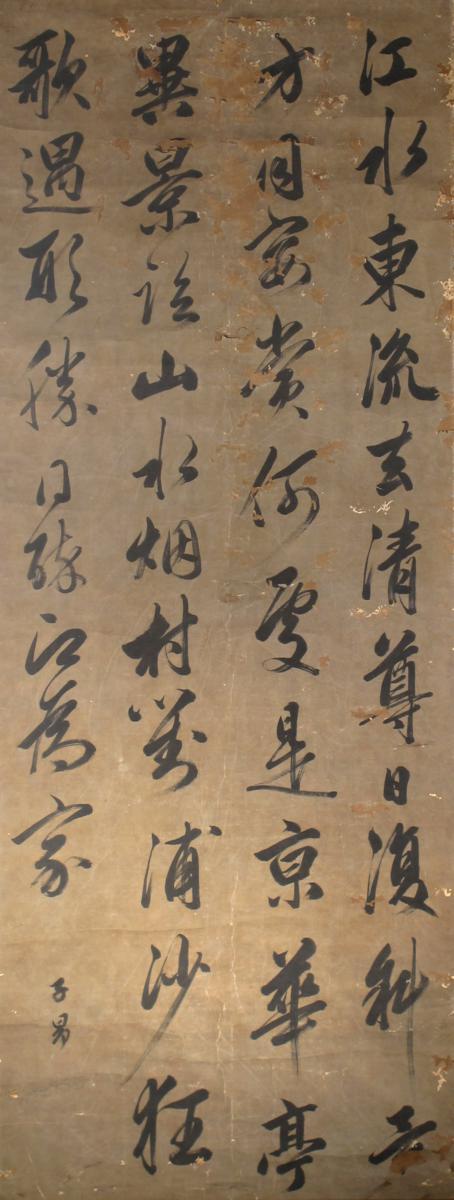 江水東流去清尊日復斜
方同宴賞何處是京華亭
異景臨山水烟村對浦沙狂
歌遇形勝日醉江為家
子昂